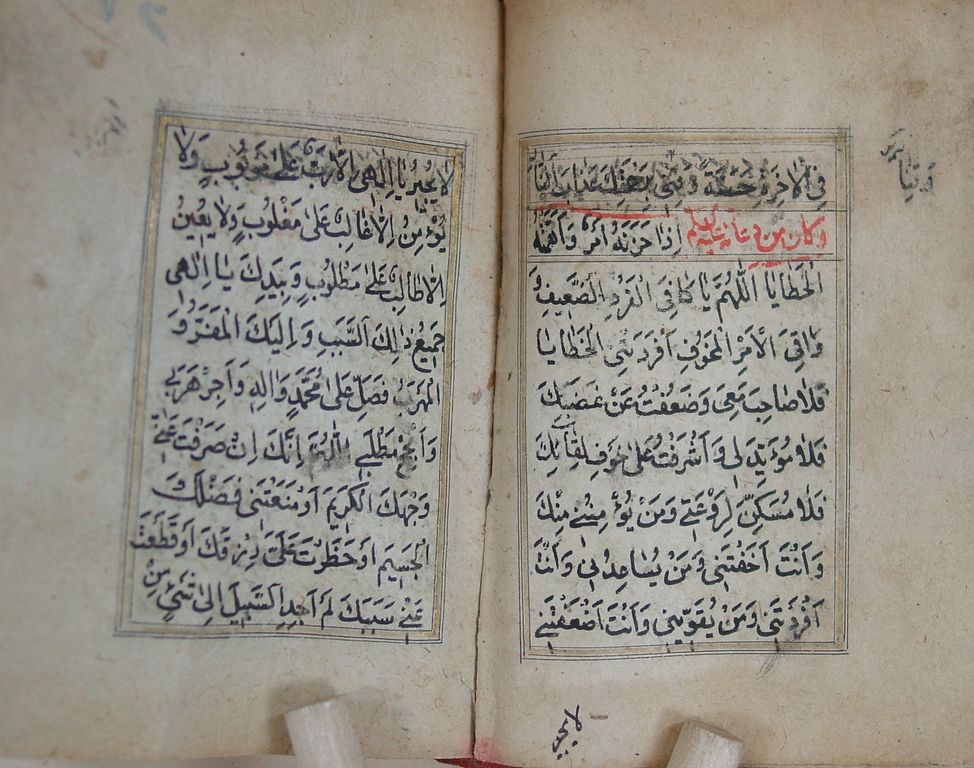 فِي الْاٰخِرَةِ حَسَنَةً وَقِنِي بِرَحْمَتِكَ عَذَابَ النَّارِ
وَكانَ مِن اِذَا حَزَنَهُ اَمْرٌ وَاَهَمَّتْهُ
الْخَطَايَا اَللّٰهُمَّ يَا كَافِيَ الْفَرْدِ الضَّعِيفِ
وَاقِىَ الْاَمْرِ الْمَخُوفِ اَفْرَدَتْنِى الْخَطَايَا
فَلَا صَاحِبَ مَعِى وَضَعُفْتُ عَنْ غَضَبِكَ
فَلَا مُؤَيِّدَ لِى وَاَشْرَفْتُ عَلٰى خَوْفِ لِقَائِكَ
فَلَا مُسَكِّنَ لِرَوْعَتِى وَمَنْ يُؤْمِنُنِى مِنْكَ
وَاَنْتَ اَخَفْتَنِى وَمَنْ يُسَاعِدُنِى وَاَنْتَ
اَفْرَدْتَنِى وَمَنْ يُقَوِّينِى وَاَنْتَ اَضْعَفْتَنِى
لا يجير
لَا يُجِيرُ يَا اِلٰهِى اِلَّا رَبٌّ عَلٰى مَرْبُوبٍ وَلَا
يُؤْمِنُ اِلَّا غَالِبٌ عَلٰى مَغْلُوبٍ وَلَا يُعِينُ
اِلَّا طَالِبٌ عَلٰى مَطْلُوبٍ وَبِيَدِكَ يَا اِلٰهِى
جَمِيعُ ذٰلِكَ السَّبَبِ وَاِلَيْكَ الْمَفَرُّ وَ
الْمَهْرَبُ فَصَلِّ عَلٰى مُحَمَّدٍ وَاٰلِهِ وَاَجِرْ هَرَبِى
وَاَنْجِحْ مَطْلَبِى اَللّٰهُمَّ اِنَّكَ اِنْ صَرَفْتَ عَنِّى
وَجْهَكَ الْكَرِيمَ اَوْ مَنَعْتَنِى فَضْلَكَ
الْجَسِيمَ اَوْ حَظَرْتَ عَلَىَّ رِزْقَكَ اَوْ قَطَعْتَ
عَنِّى سَبَبَكَ لَمْ اَجِدِ السَّبِيلَ اِلٰى شَىْءٍ مِنْ